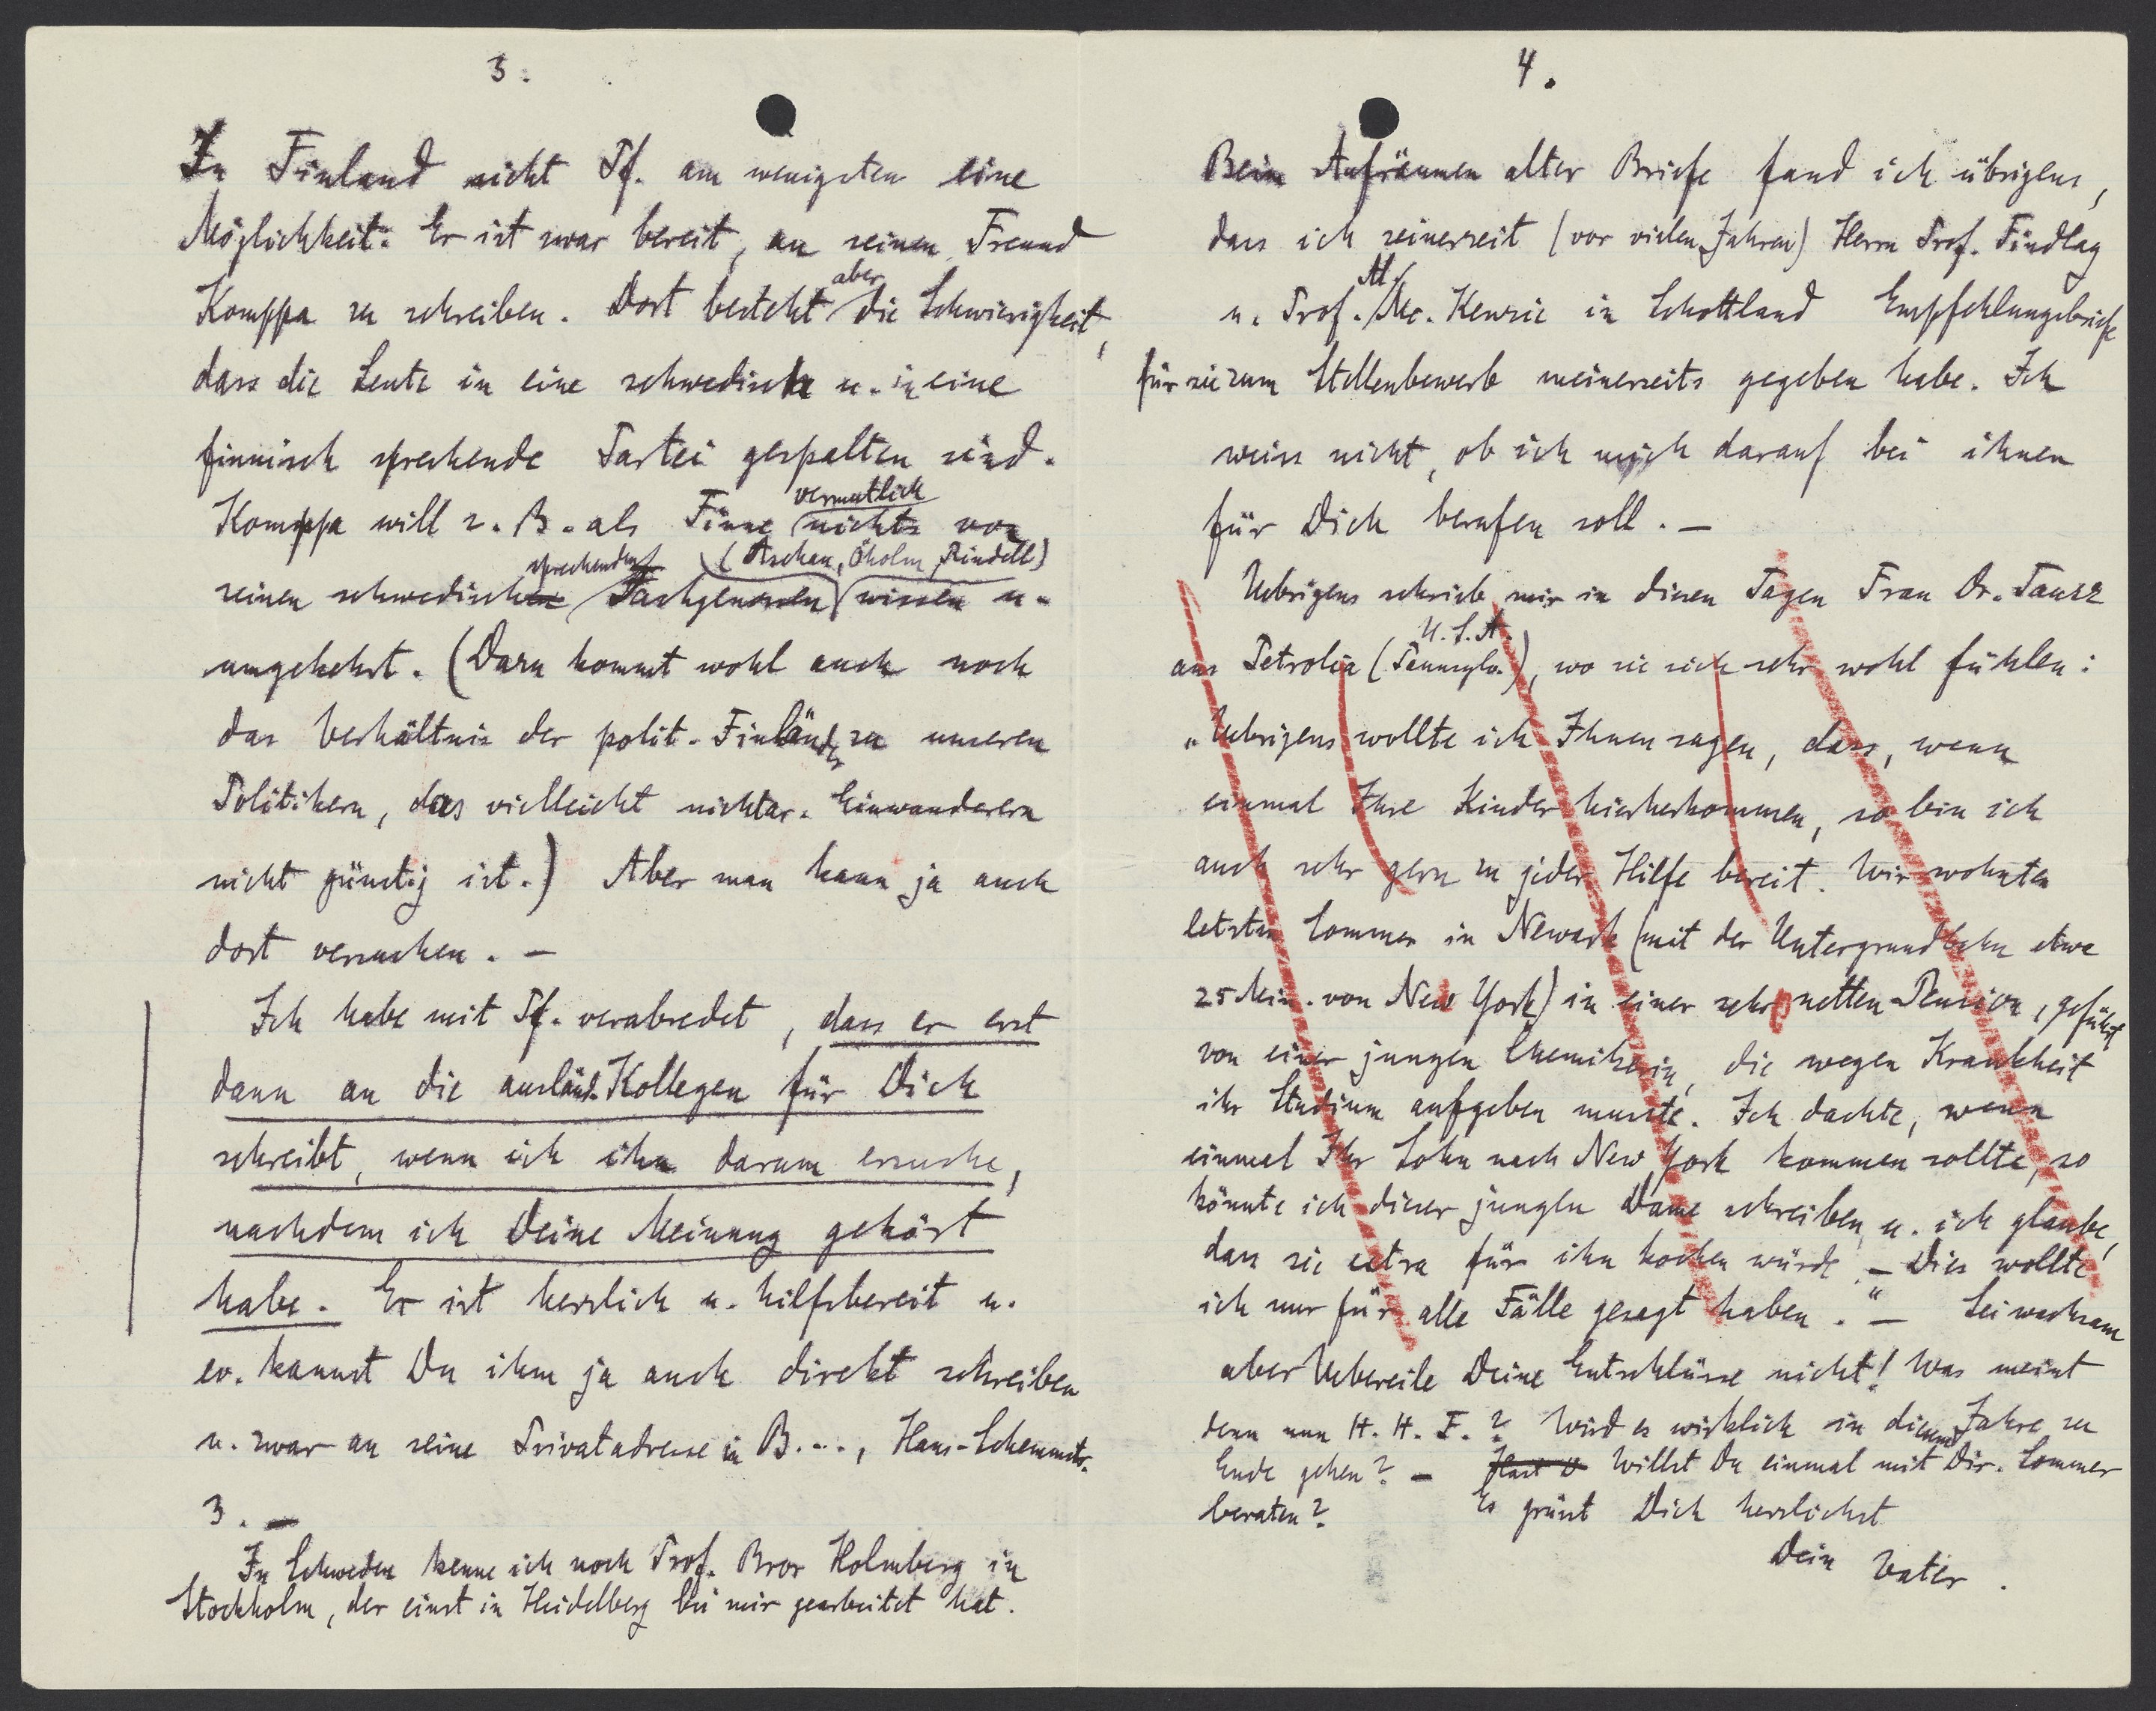 3.
In Finland sieht Pf. am wenigsten eine
Möglichkeit. Er ist zwar bereit, an seinen Freund
Komppa zu schreiben. Dort besteht aber die Schwierigkeit,
dass die Leute in eine schwedisch u. in eine
finnisch sprechende Partei gespalten sind.
Komppa will z. B. als Finne vermutlich nichts von
seinen schwedisch sprechenden Fachgenossen (Aschan, Öholm, Rindell) wissen u.
umgekehrt. (Dazu kommt wohl auch noch
das Verhältnis der polit. Finländer zu unseren
Politikern, das vielleicht nichtar. Einwanderern
nicht günstig ist.) Aber man kann ja auch
dort versuchen. –
Ich habe mit Pf. verabredet, dass er erst
dann an die ausländ. Kollegen für Dich
schreibt, wenn ich ihn darum ersuche,
nachdem ich Deine Meinung gehört
habe. Er ist herzlich u. hilfsbereit u.
ev. kannst Du ihm ja auch direkt schreiben
u. zwar an seine Privatadresse in B...., Hans-Schemmstr.
3. –
In Schweden kenne ich noch Prof. Bror Holmberg in
Stockholm, der einst in Heidelberg bei mir gearbeitet hat.
4.
Beim Aufräumen alter Briefe fand ich übrigens,
dass ich seinerzeit (vor vielen Jahren) Herrn Prof. Findlay
u. Prof. Al. Mc. Kenzie in Schottland Empfehlungsbriefe
für sie zum Stellenbewerb meinerseits gegeben habe. Ich
weiss nicht, ob ich mich darauf bei ihnen
für Dich berufen soll. –
Uebrigens schrieb mir in diesen Tagen Frau Dr. Tausz
aus Petrolia (Pennsylv. U.S.A.), wo sie sich sehr wohl fühlen:
„Uebrigens wollte ich Ihnen sagen, dass, wenn
einmal Ihre Kinder hierherkommen, so bin ich
auch sehr gern zu jeder Hilfe bereit. Wir wohnten
letzten Sommer in Newark (mit der Untergrundbahn etwa
25 Min. von New York) in einer sehr netten Pension, geführt
von einer jungen Chemikerin, die wegen Krankheit
ihr Studium aufgeben musste. Ich dachte, wenn
einmal Ihr Sohn nach New York kommen sollte, so
könnte ich dieser jungen Dame schreiben u. ich glaube,
dass sie extra für ihn kochen würde. – Dies wollte
ich nur für alle Fälle gesagt haben." – Sei wachsam
aber Uebereile Deine Entschlüsse nicht! Was meint
denn nun H. H. F.? Wird es wirklich in diesem Jahre zu
Ende gehen? – Willst Du einmal mit Dir. Sommer
beraten? Es grüsst Dich herzlichst
Dein Vater.